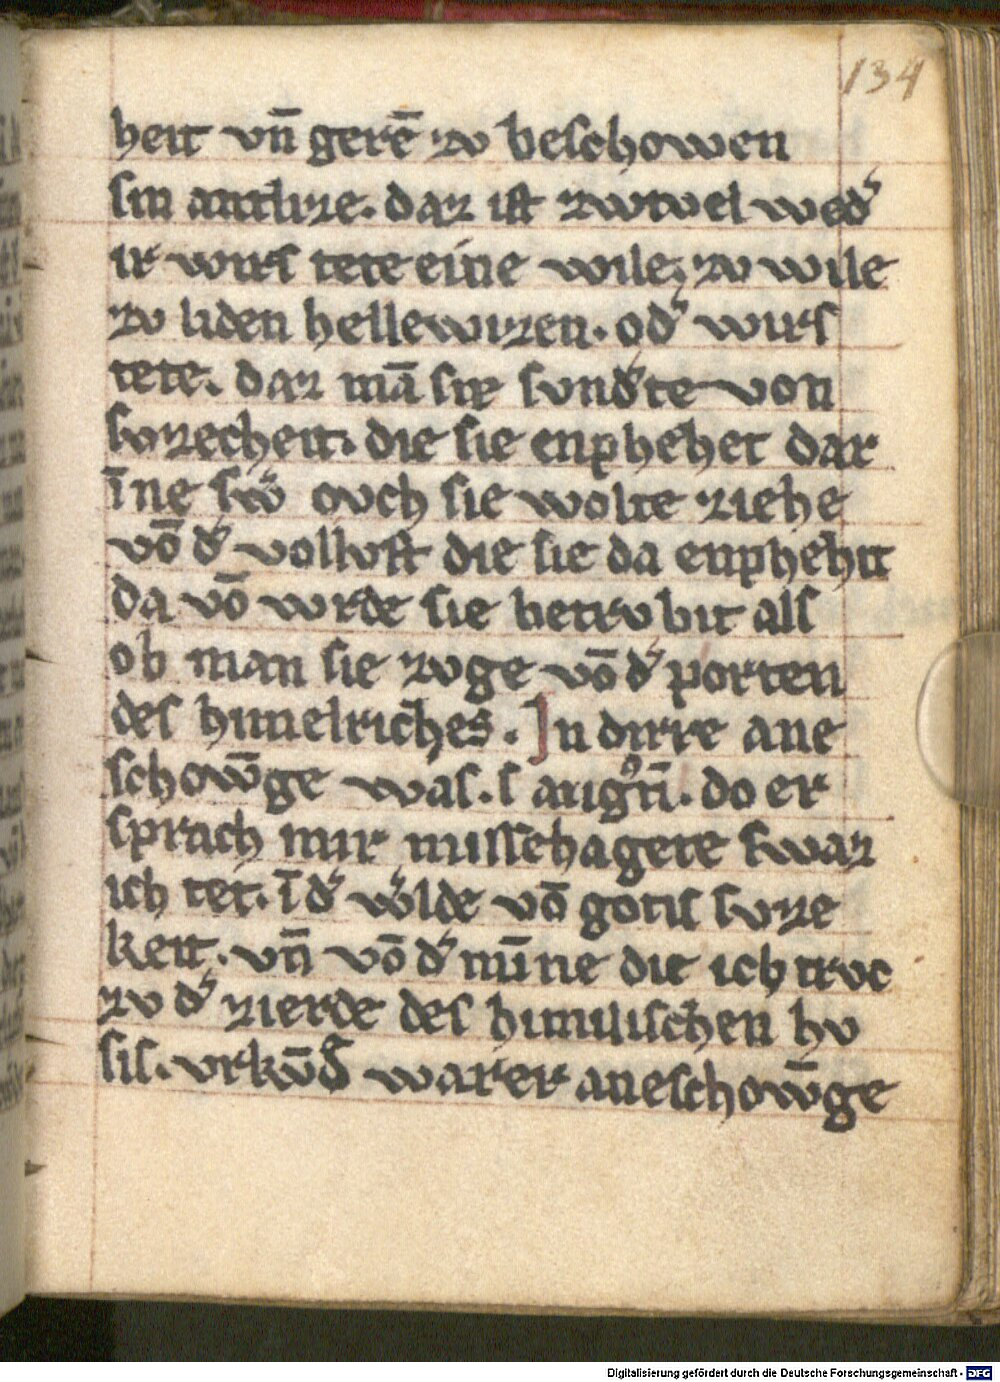 134
heit vn̄ gerē zv beschowen
sin antlize. daz ist zwivel wed᷑
ir wirs tete eine wile zv wile
zv liden hellewizen. od᷑ wirs
tete. daz mā sie svnd᷑te von
svzecheit. die sie enphehet dar
īne sw᷑ ovch sie wolte ziehe
vō d᷑ vollvst die sie da enphehit
da vō wrde sie betrvbit als
ob man sie zvge vō d᷑ porten
des himelriches. In dirre ane
schow̄ge was. s avigꝯtī. do er
sprach mir missehagete swaz
ich tet. ī d᷑ w᷑lde vō gotis svze
keit. vn̄ vō d᷑ mīne die ich trvc
zv d᷑ zierde des himilischen hv
sis. vrkv̄d᷑ warer aneschow̄ge
Digitalisierung gefördert durch die Deutsche Forschungsgemeinschaft - DFG